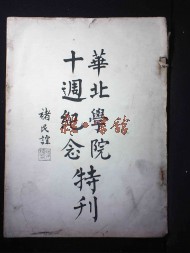 華北學院
十週紀念特刊
褚民誼